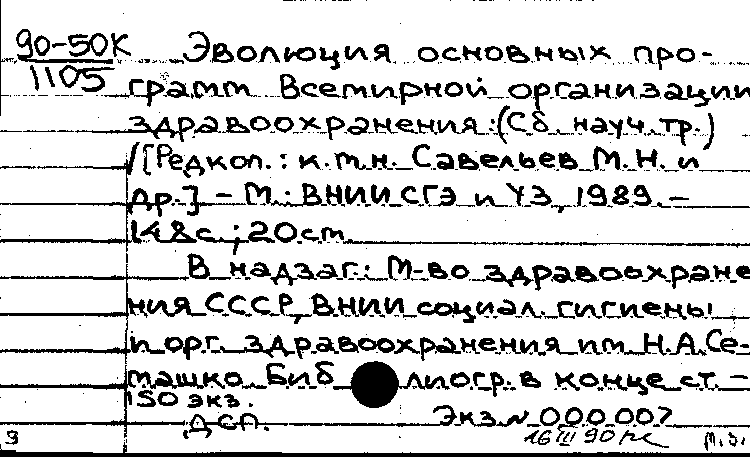 90-50К
1105
Эволюция основных про-
грамм Всемирной организации
здравоохранения: (Сб. науч. тр.)
/[Редкол.: к.т.н. Савельев М.Н. и
др.] - М.: ВНИИСГЭ и УЗ, 1989. -
148с.; 20cm.
В надзаг.: М-во здравоохране
ния СССР, ВНИИ социал. гигиены
и орг. здравоохранения им. Н.А.Се-
машко. Библиогр. в конце ст. -
150 экз.
ДСП.
Экз. N 000 007
16 III 90
9